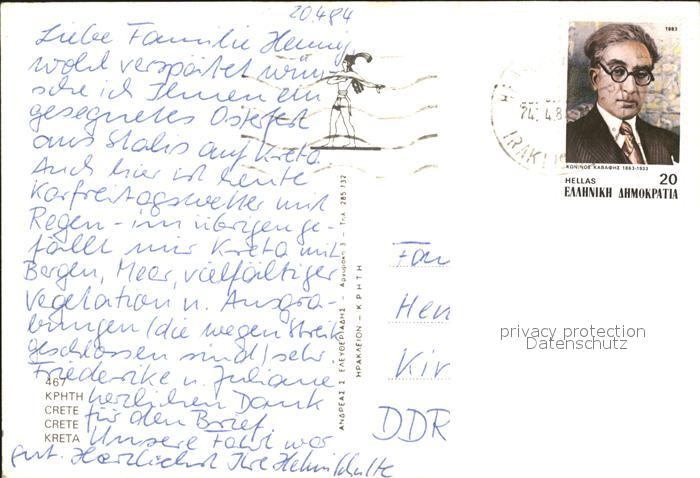 20.4.84
Liebe Familie Hennig
wohl verspätet wün-
sche ich Ihnen ein
gesegnetes Osterfest
aus Stalis auf Kreta.
Auch hier ist heute
Karfreitagswetter mit
Regen - im übrigen ge-
fällt mir Kreta mit
Bergen, Meer, vielfältiger
Vegetation u. Ausgra-
bungen (die wegen Streik
geschlossen sind) sehr.
Friederike u. Juliane
herzlichen Dank
für den Brief.
Unsere Fahrt war
gut. Herzlichst Ihre
467
ΚΡΗΤΗ
CRETE
CRETE
KRETA
ΑΝΔΡΕΑΣ Σ. ΕΛΕΥΘΕΡΙΑΔΗΣ - 3 - Τηλ. 285.732
ΗΡΑΚΛΕΙΟΝ - ΚΡΗΤΗ
24. 4.8
IRAKLI
1983
ΚΩΝ/ΝΟΣ ΚΑΒΑΦΗΣ 1863-1933
HELLAS 20
ΕΛΛΗΝΙΚΗ ΔΗΜΟΚΡΑΤΙΑ
Fam
Hen
Kir
DDR
privacy protection
Datenschutz